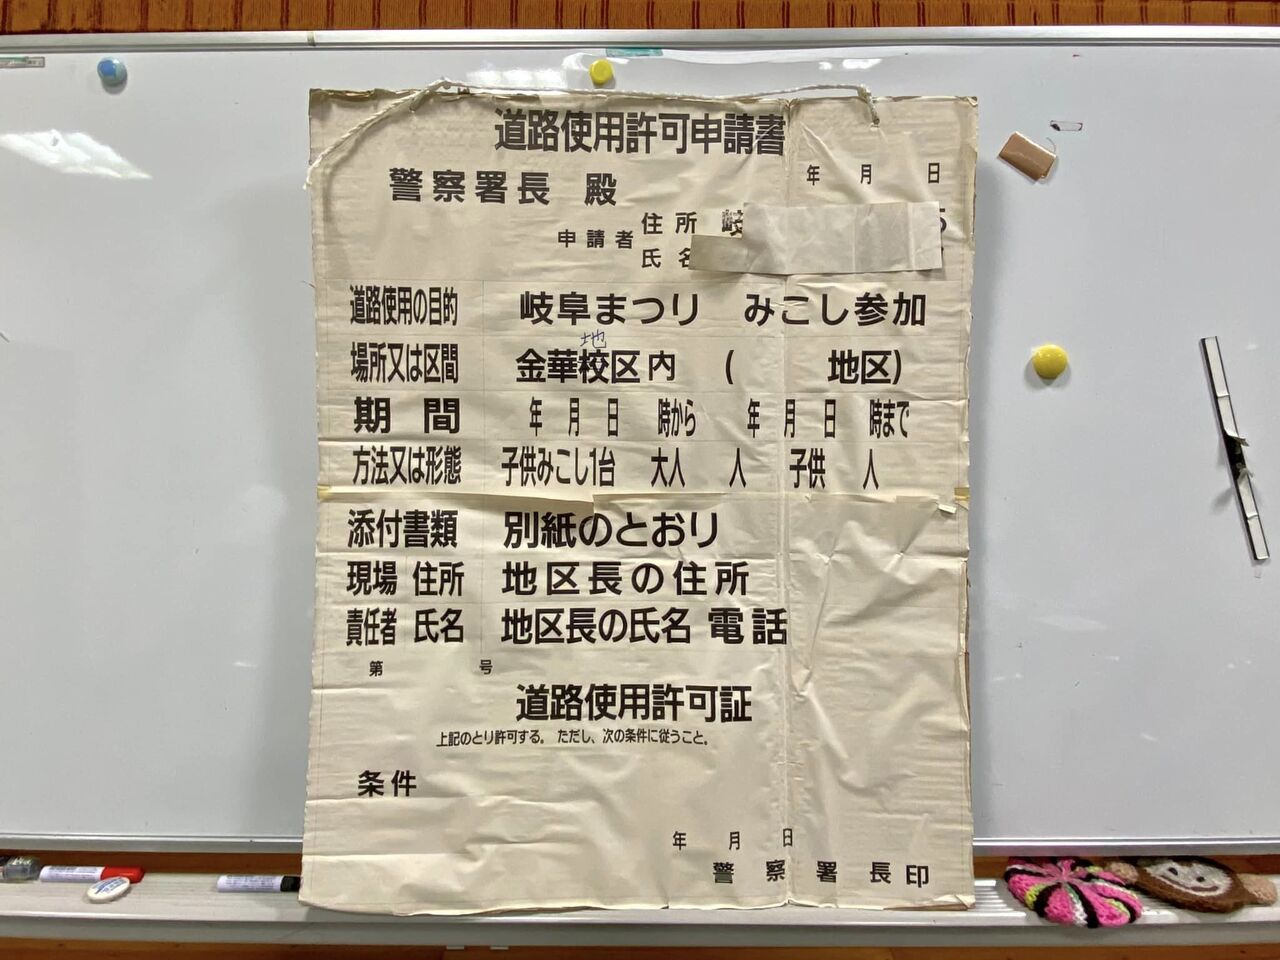 道路使用許可申請書
年 月 日
警察署長 殿
申請者 住所 岐 5
氏名
道路使用の目的 岐阜まつり みこし参加
地
場所又は区間 金華校区内 ( 地区)
期間 年 月 日 時から 年 月 日 時まで
方法又は形態 子供みこし1台 大人 人 子供 人
添付書類 別紙のとおり
現場 住所 地区長の住所
責任者 氏名 地区長の氏名 電話
第 号
道路使用許可証
上記のとり許可する。ただし、次の条件に従うこと。
条件
年 月 日
警察署長印